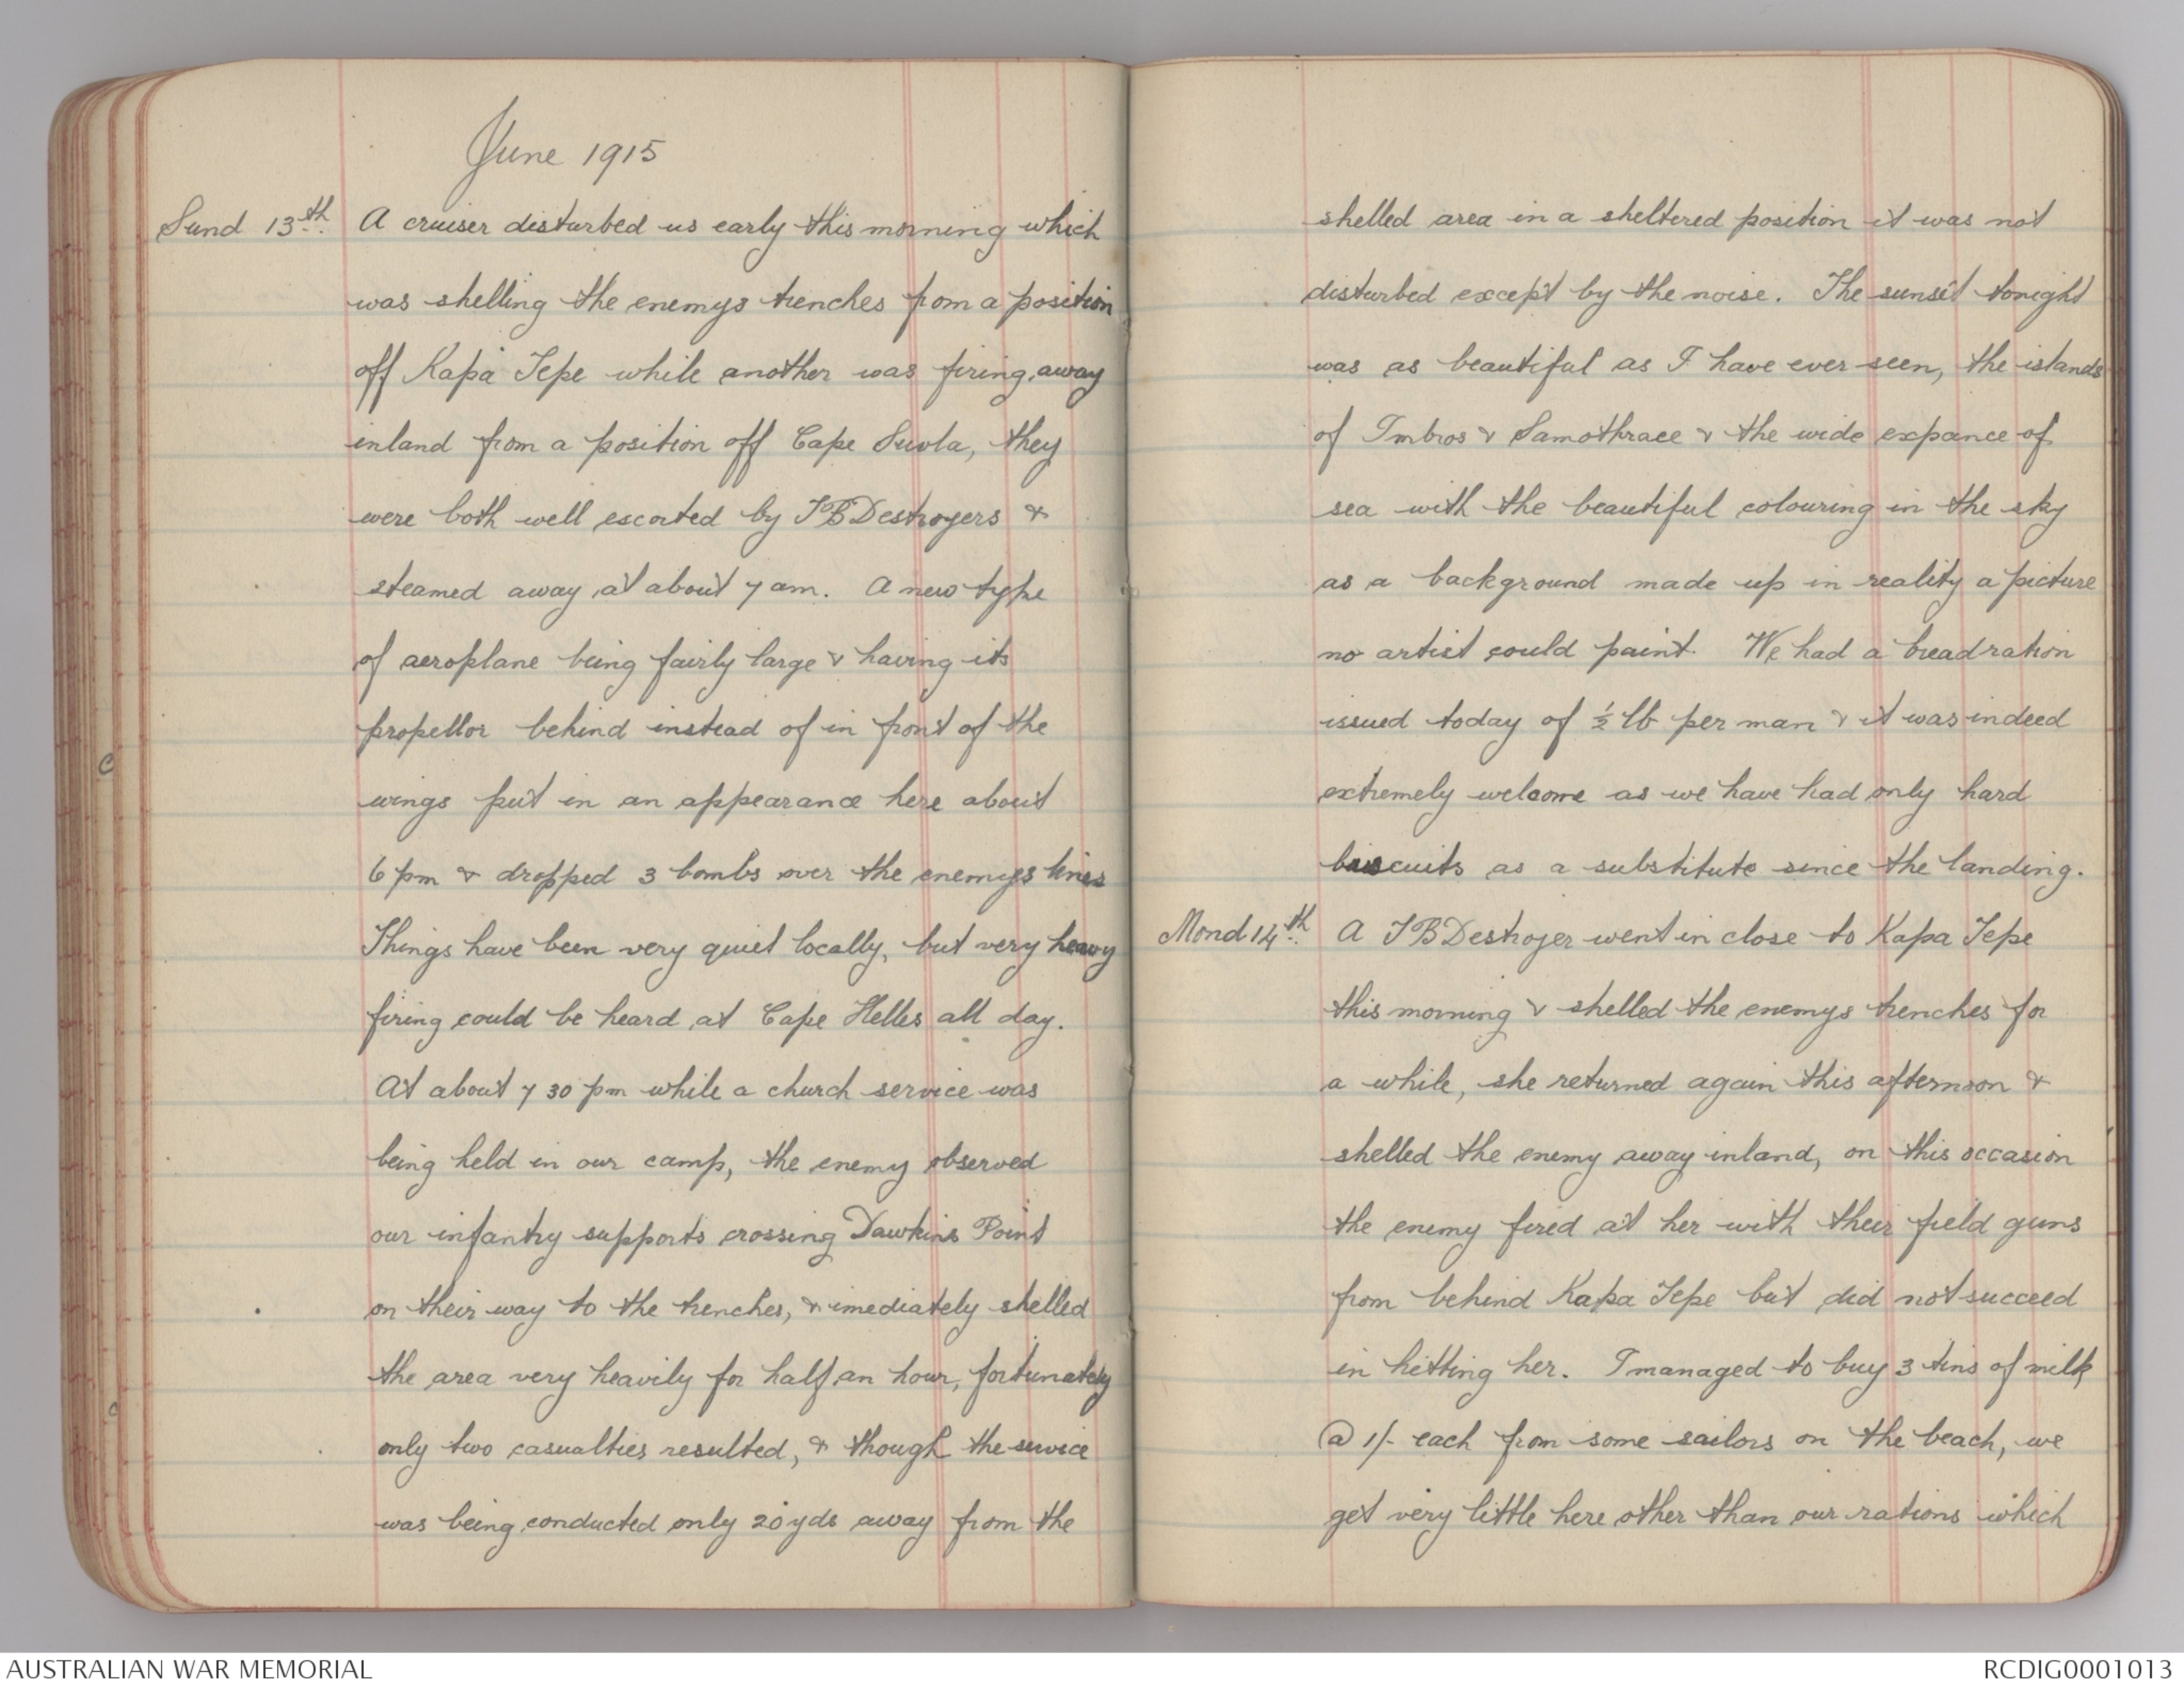 June 1915
Sund 13th. A cruiser disturbed us early this morning which
was shelling the enemys trenches from a position
off Kapa Tepe while another was firing away
inland from a position off Cape Suvla, they
were both well escorted by TBDestroyers &
steamed away at about 7 am. A new type
of aeroplane being fairly large & having its
propellor behind instead of in front of the
wings put in an appearance here about
6 pm & dropped 3 bombs over the enemys lines
Things have been very quiet locally, but very heavy
firing could be heard at Cape Helles all day.
At about 7 30 pm while a church service was
being held in our camp, the enemy observed
our infantry supports crossing Dawkins Point
on their way to the trenches, & imediately shelled
the area very heavily for half an hour, fortunately
only two casualties resulted, & though the service
was being conducted only 20 yds away from the
shelled area in a sheltered position it was not
disturbed except by the noise. The sunset tonight
was as beautiful as I have ever seen, the islands
of Imbros & Samothrace & the wide expance of
sea with the beautiful colouring in the sky
as a background made up in reality a picture
no artist could paint. We had a bread ration
issued today of ½ lb per man & it was indeed
extremely welcome as we have had only hard
biscuits as a substitute since the landing.
Mond 14th. A TBDestroyer went in close to Kapa Tepe
this morning & shelled the enemys trenches for
a while, she returned again this afternoon &
shelled the enemy away inland, on this occasion
the enemy fired at her with their field guns
from behind Kapa Tepe but did not succeed
in hitting her. I managed to buy 3 tins of milk
@ 1/- each from some sailors on the beach, we
get very little here other than our rations which
AUSTRALIAN WAR MEMORIAL
RCDIG0001013